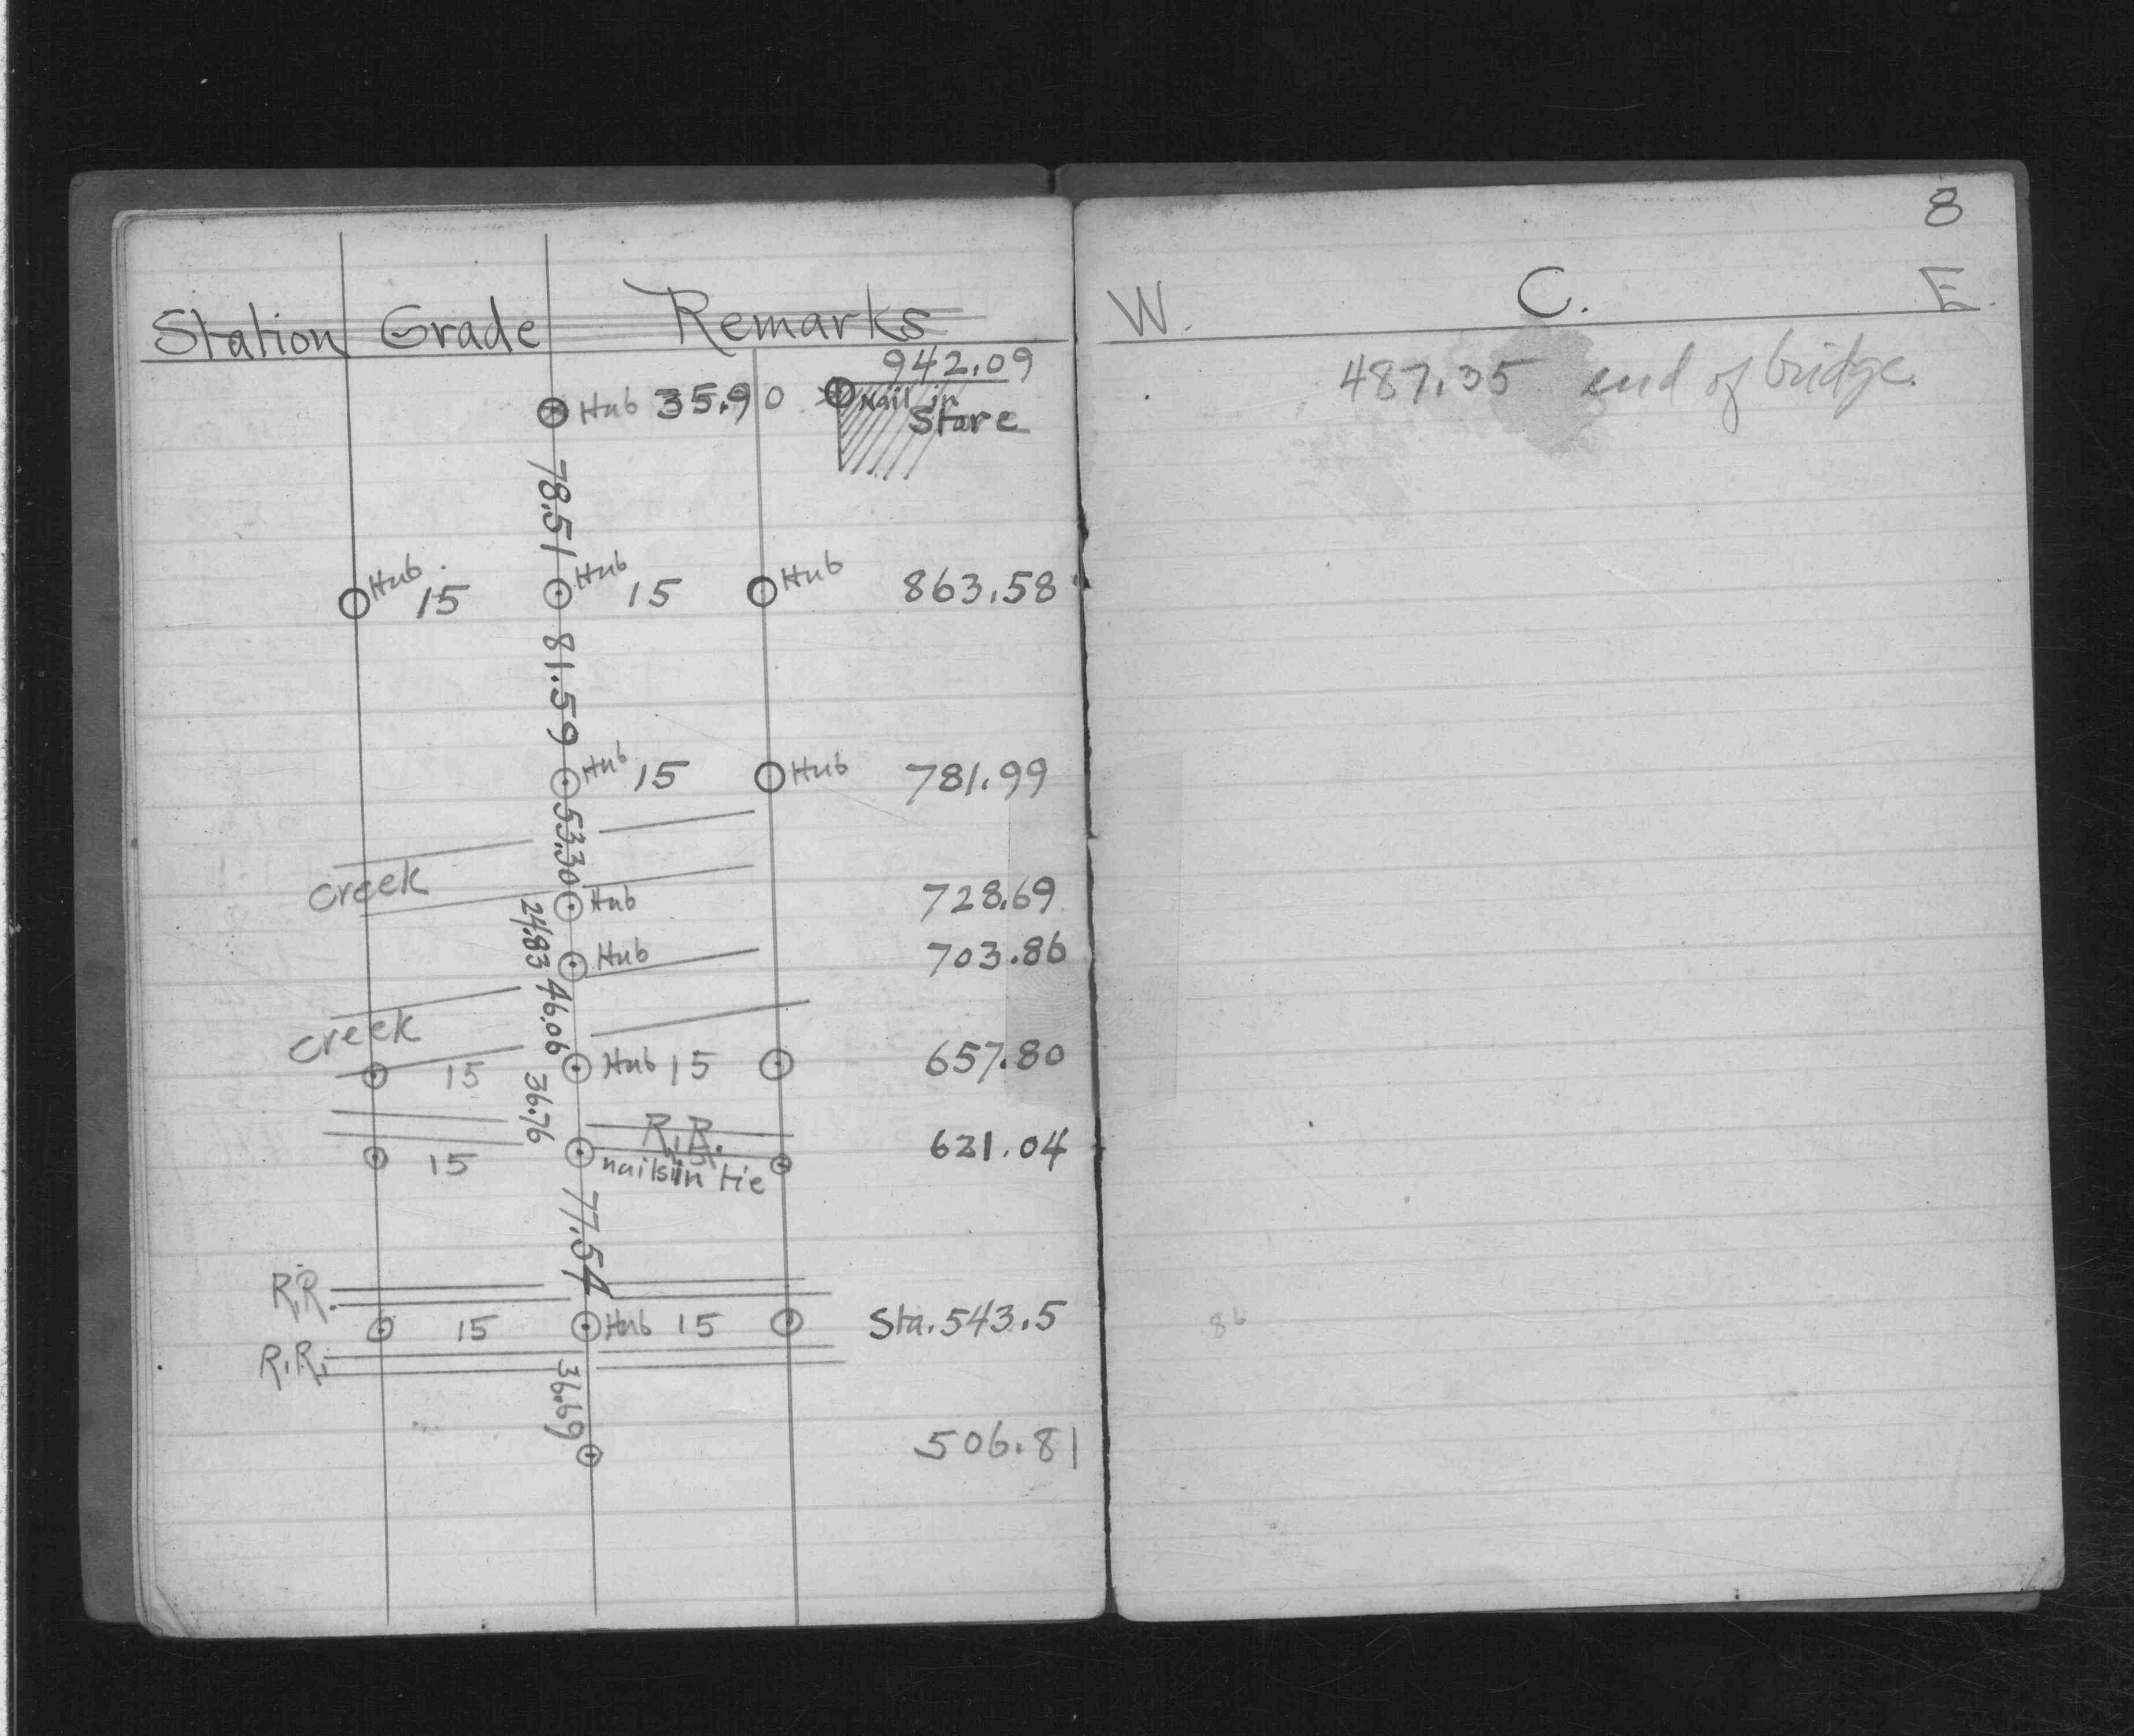 Station Grade Remarks
942.09
Hub 35.90 Nail in
Store
78.51
Hub. 15 Hub 15 Hub 863.58
81.59
Hub 15 Hub 781.99
53.30
creek
Hub 728.69
24.83
Hub 703.86
46.06
creek
15 Hub 15 657.80
36.76
R.R.
15 nails in tie 621.04
77.54
R.R.
15 Hub 15 Sta. 543.5
R.R.
36.69
506.81
8
W. C. E.
487.35 end of bridge.
86